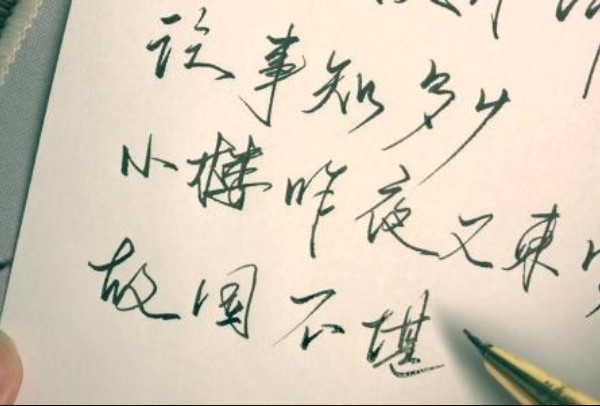 往事知多少
小樓昨夜又東
故国不堪